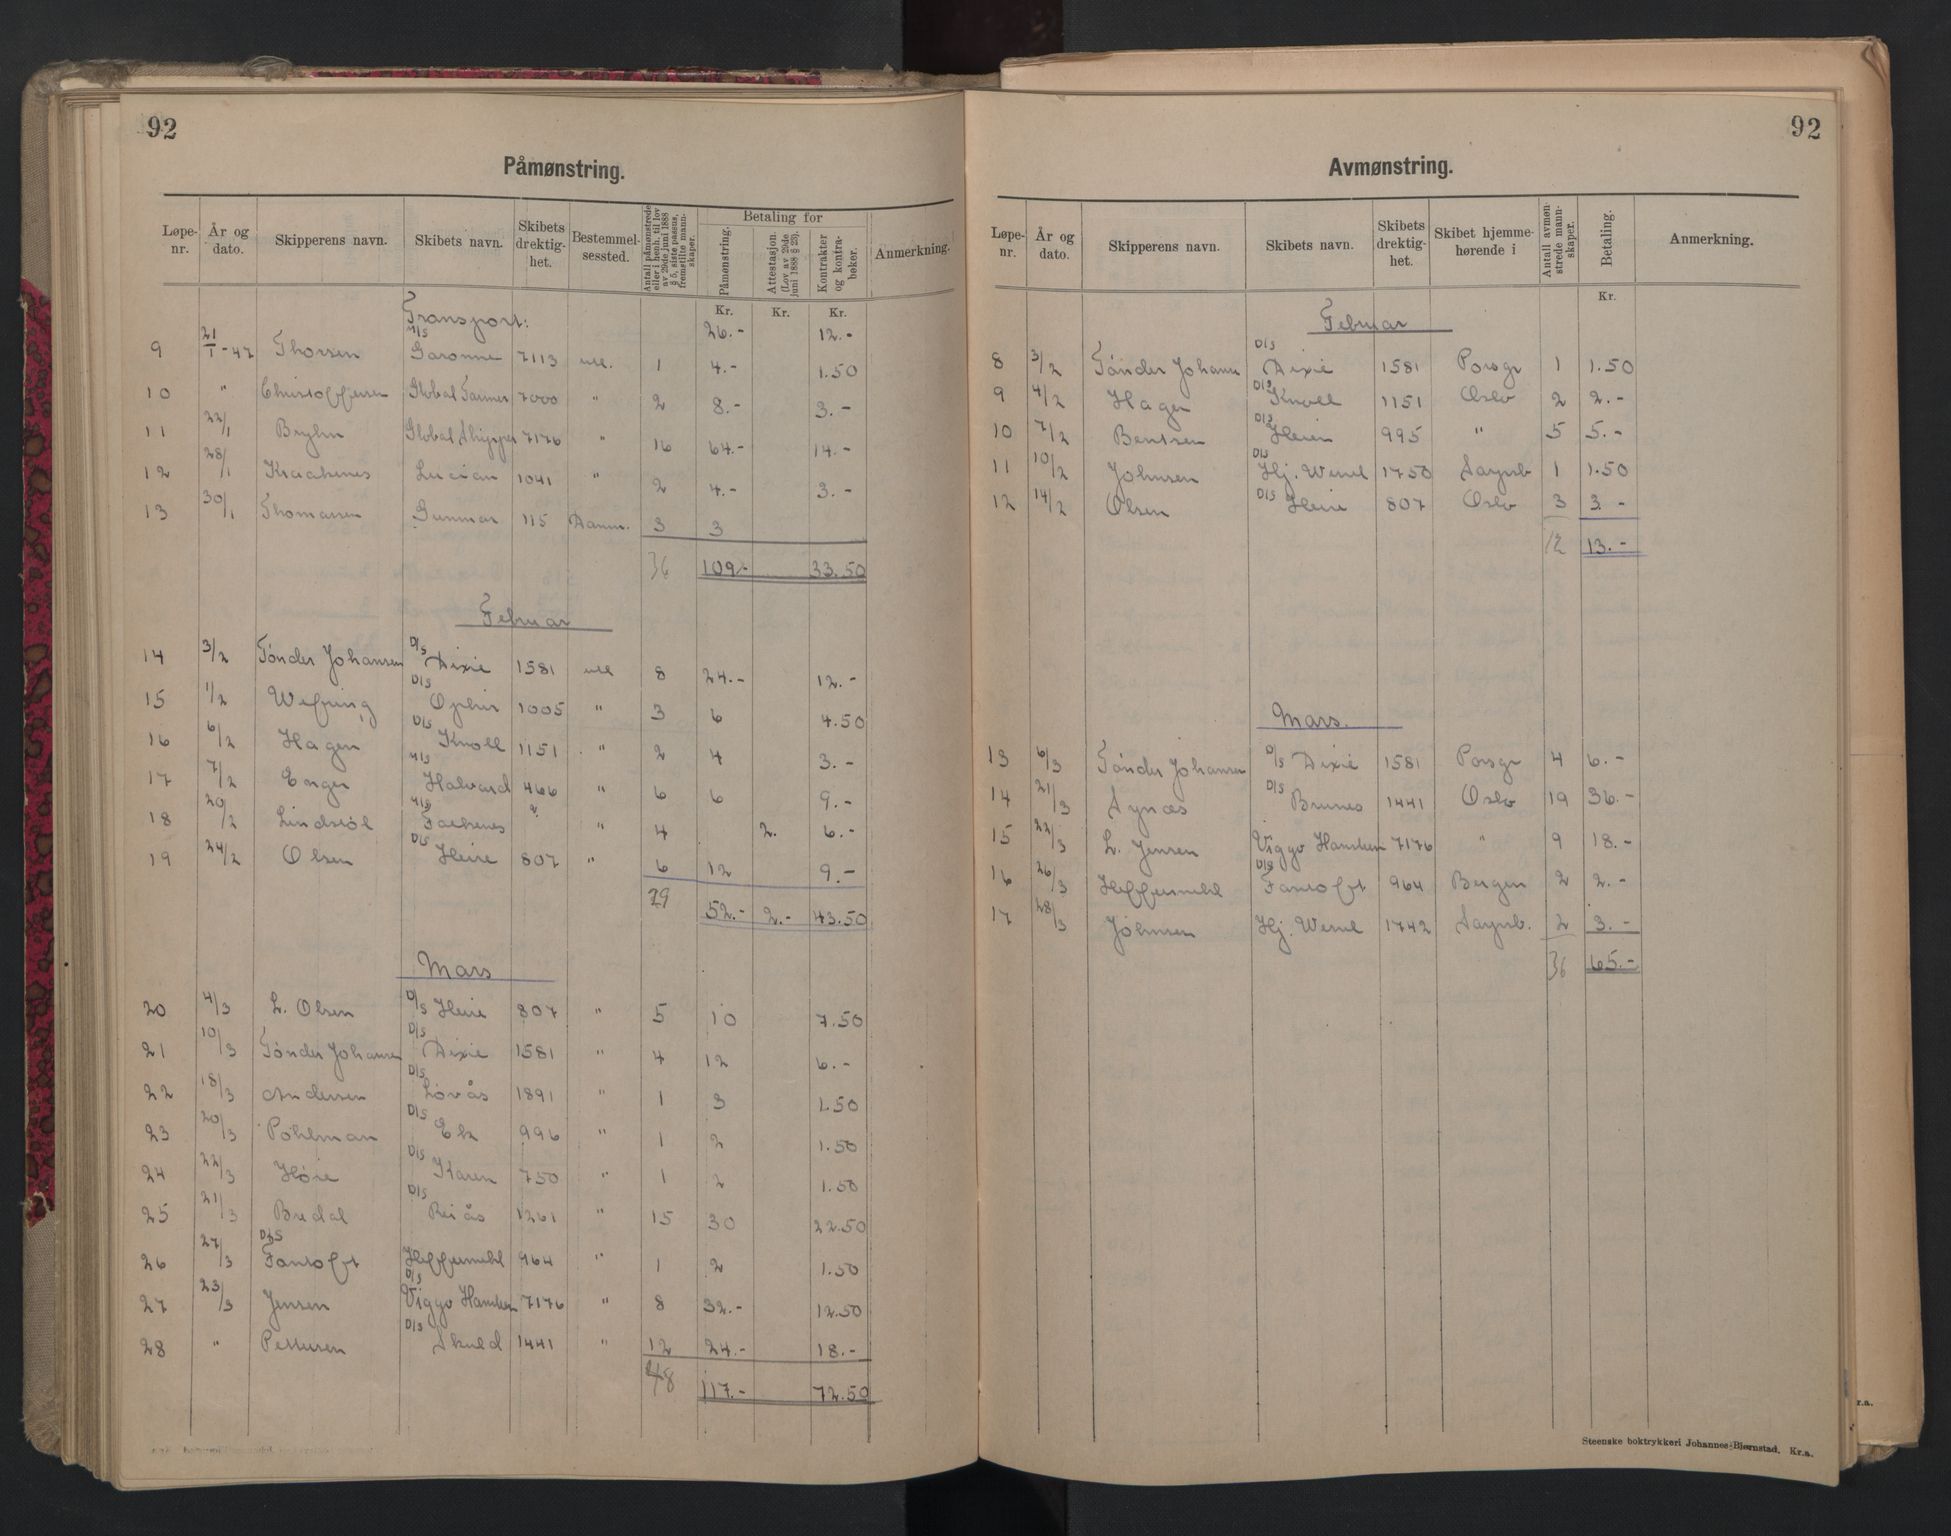 92
Påmønstring.
Løpe-nr. År og dato. Skipperens navn. Skibets navn. Skibets drektig-het. Bestemmel-sessted. Antall påmønstrede eller i henh. til lov av 29de juni 1888 § 5, siste passus, fremstilte mann-skaper. Betaling for Påmønstring. Attestasjon. (Lov av 29de juni 1888 § 23). Kontrakter og kontra-bøker. Anmerkning.
Kr. Kr. Kr.
Transport: 26.- 12.-
9 21/1-47 Thorsen M/S Garonne 7113 utl. 1 4.- 1.50
10 " Christoffersen Global Farmer 7000 " 2 8.- 3.-
11 22/1 Bryhn Global Shipper 7176 " 16 64.- 14.-
12 28/1 Kraakenes Lucian 1041 " 2 4.- 3.-
13 30/1 Thomassen Gunnar 115 Danm. 3 3
36 109.- 33.50
Februar
14 3/2 Tønder Johansen D/S Dixie 1581 utl 8 24.- 12.-
15 1/2 Wefring D/S Ophir 1005 " 3 6 4.50
16 6/2 Hagen D/S Knoll 1151 " 2 4 3.-
17 7/2 Enger M/S Halvard 466 " 6 6 9.-
18 20/2 Lindstøl M/S Falkenes " 4 2. 6.-
19 24/2 Olsen D/S Heire 807 " 6 12 9.-
29 52.- 2.- 43.50
Mars
20 4/3 L. Olsen D/S Heire 807 " 5 10 7.50
21 10/3 Tønder Johansen D/S Dixie 1581 " 4 12 6.-
22 18/3 Andersen D/S Lovås 1891 " 1 3 1.50
23 20/3 Pöhlman D/S Ek 996 " 1 2 1.50
24 22/3 Høie D/S Karen 750 " 1 2 1.50
25 21/3 Bredal D/S Reiås 1261 " 15 30 22.50
26 27/3 D/S Fantoft Heffermehl 964 " 1 2 1.50
27 23/3 Jensen D/S Viggo Hansten 7176 " 8 32.- 12.50
28 " Pettersen D/S Skuld 1441 " 12 24.- 18.-
48 117.- 72.50
92
Avmønstring.
Løpe-nr. År og dato. Skipperens navn. Skibets navn. Skibets drektig-het. Skibet hjemme-hørende i Antall avmøn-strede mann-skaper. Betaling. Anmerkning.
Kr.
Februar
8 3/2 Tønder Johansn D/S Dixie 1581 Porsgr 1 1.50
9 4/2 Hagen D/S Knoll 1151 Oslo 2 2.-
10 7/2 Bentsen D/S Heien 995 " 5 5.-
11 10/2 Johnsen D/S Hj. Wessel 1750 Sarpsb 1 1.50
12 14/2 Olsen D/S Heire 807 Oslo 3 3.-
12 13.-
Mars.
13 6/3 Tønder Johansen D/S Dixie 1581 Porsgr 4 6.-
14 21/3 Synæs D/S Brunes 1441 Oslo 19 36.-
15 22/3 L. Jensen Viggo Hansten 7176 " 9 18.-
16 26/3 Heffermehl D/S Fantoft 964 Bergen 2 2.-
17 28/3 Johnsen Hj. Wessel 1742 Sarpsb. 2 3.-
36 65.-
Steenske boktrykkeri Johannes Bjørnstad. Kr.a.
r.a.